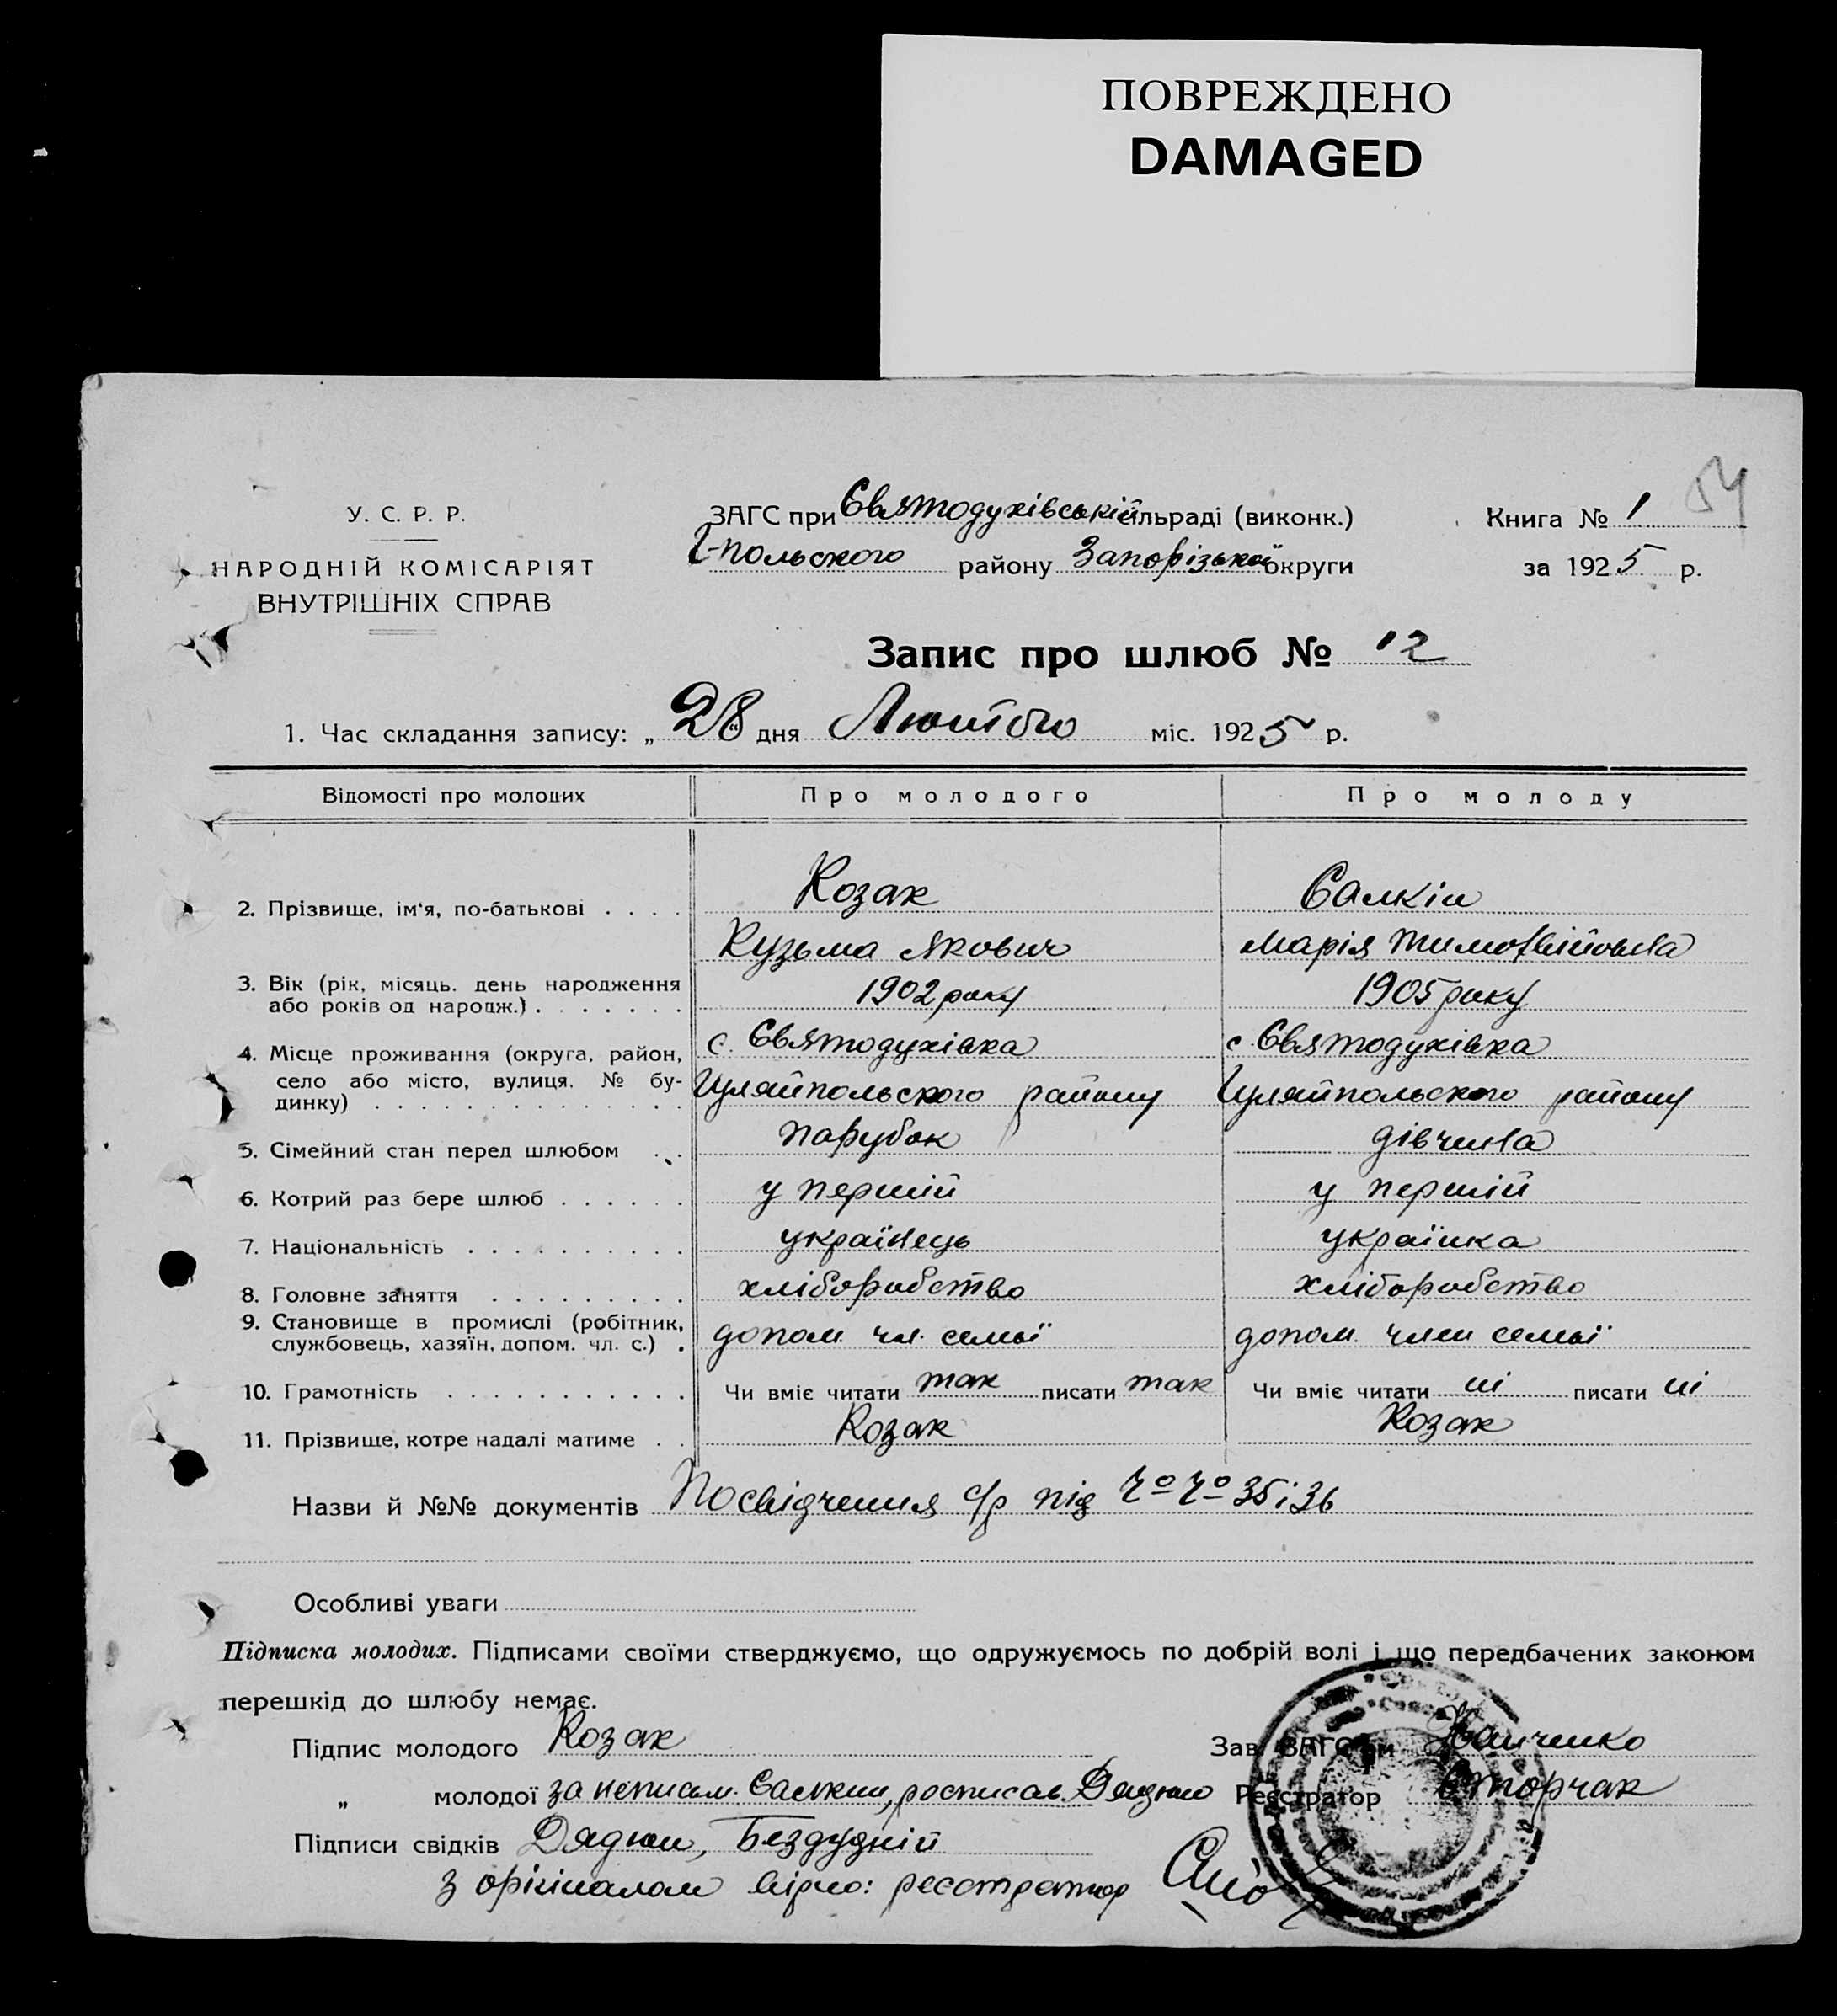 ПОВРЕЖДЕНО
DAMAGED
54
У. С. Р. Р.
НАРОДНІЙ КОМІСАРІЯТ
ВНУТРІШНІХ СПРАВ
ЗАГС при Святодухівській сільраді (виконк.)
Г-польского району Запорізької округи
Книга № 1
за 1925 р.
Запис про шлюб № 12
1. Час складання запису: „ 28 " дня Лютого міс. 1925 р.
Відомості про молодих Про молодого Про молоду
2. Прізвище, ім'я, по-батькові . . . . Козак Салкін
Кузьма Якович Марія Тимофвійовна
3. Вік (рік, місяць, день народження
або років од народж.) . . . . . . . 1902 року 1905 року
4. Місце проживання (округа, район, с. Святодухівка с Святодухівка
село або місто, вулиця, № бу-
динку) . . . . . . . . . . . . . . Гуляйпольского району Гуляйпольского району
5. Сімейний стан перед шлюбом . . парубок дівчина
6. Котрий раз бере шлюб . . . . . . у перший у перший
7. Національність . . . . . . . . . . українець українка
8. Головне заняття . . . . . . . . . хліборобство хліборобство
9. Становище в промислі (робітник,
службовець, хазяїн, допом. чл. с.) . допом. чл. семьї допом. член семьї
10. Грамотність . . . . . . . . . . . Чи вміє читати так писати так Чи вміє читати ні писати ні
11. Прізвище, котре надалі матиме . . Козак Козак
Назви й №№ документів Посвідчення с/р під №№ 35 і 36
Особливі уваги
Підписка молодих. Підписами своїми стверджуємо, що одружуємось по добрій волі і що передбачених законом
перешкід до шлюбу немає.
Підпис молодого Козак Зав. ЗАГС'ом Іванченко
„ молодої за неписьм. Салкин, росписав Дядюн Реєстратор Сторчак
Підписи свідків Дядюн, Бездудній
з орігіналом вірно: реєстратор